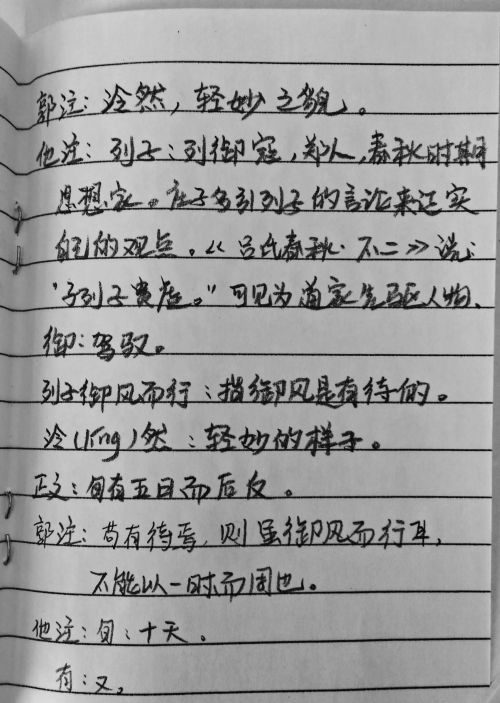 郭注：泠然，轻妙之貌。
他注：列子：列御寇，郑人，春秋时期
思想家。庄子多引列子的言论来证实
自己的观点。《吕氏春秋·不二》说：
“子列子贵虚。”可见为道家先驱人物。
御：驾驭。
列子御风而行：指御风是有待的。
泠(líng)然：轻妙的样子。
正文：旬有五日而后反。
郭注：苟有待焉，则虽御风而行耳，
不能以一时而周也。
他注：旬：十天。
有：又。